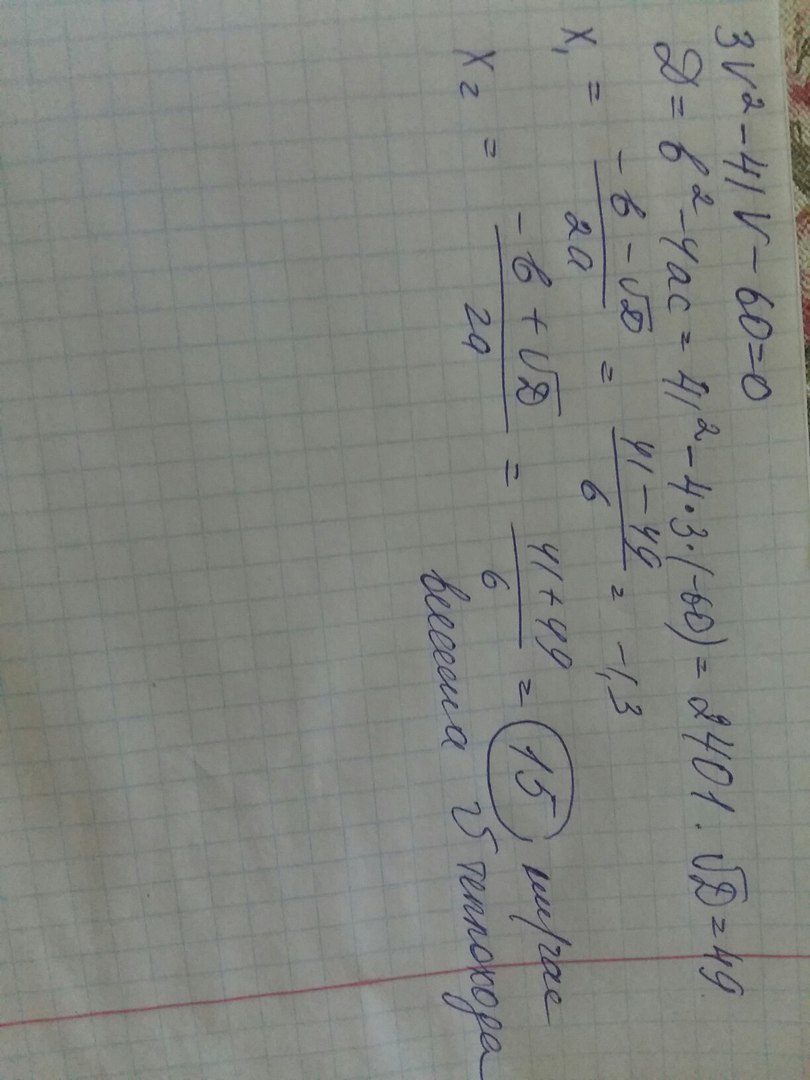 3V² - 41V - 60 = 0
D = в² - 4ac = 41² - 4·3·(-60) = 2401. √D = 49
x₁ = (-в - √D)/2a = (41 - 49)/6 = -1,3
x₂ = (-в + √D)/2a = (41 + 49)/6 = 15, км/час
V теплохода